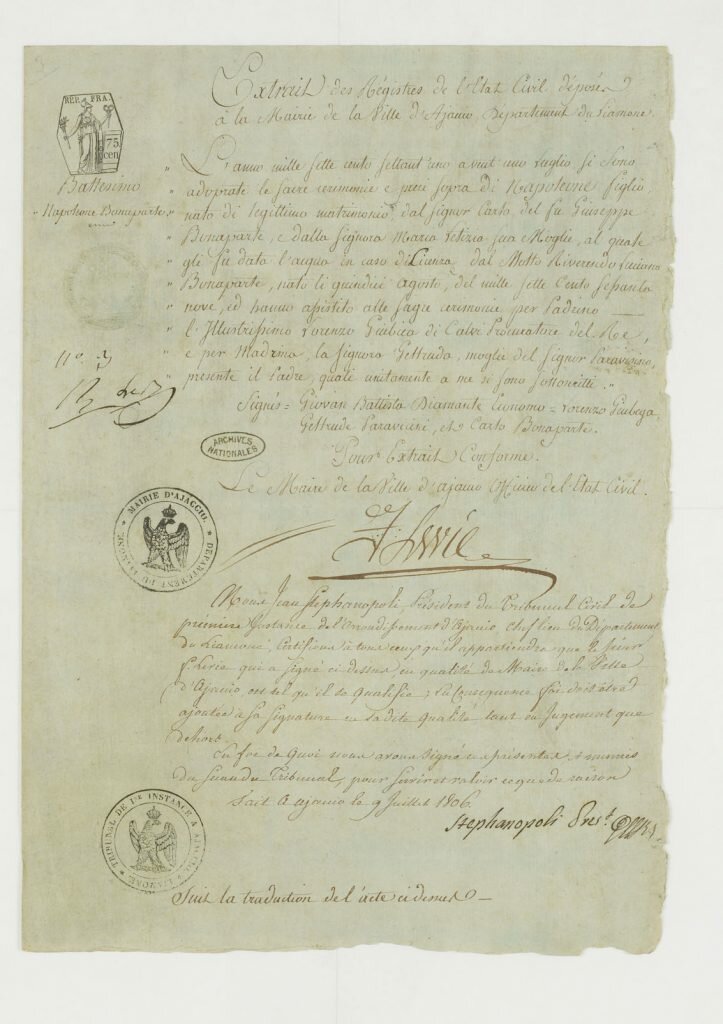 Extrait des Régistres de l'Etat Civil déposés
à la Mairie de la Ville d'Ajaccio, Département du Liamone.
REP. FRA.
75 cen
Battesimo
Napoleone Bonaparte
L'anno mille sette cento settant'uno a vent'uno luglio si sono
adoprate le sacre ceremonie e preci sopra di Napoleone figlio,
nato di legittimo matrimonio, dal signor Carlo, del fu Giuseppe
Bonaparte, e dalla signora Maria Letizia sua Moglie, al quale
gli fù dato l'acqua in casa di Licenza dal Molto Riverendo Luciano
Bonaparte, nato li quindici agosto, del mille sette Cento sessanta
nove, ed hanno assistito alle sagre ceremonie per Padrino
l'Illustrissimo Lorenzo Giubica di Calvi Procuratore del Re,
e per Madrina, la signora Geltruda, moglie del signor Paravisino,
presente il Padre, quali unitamente a me si sono sottoscritti.
n.º 3
Signés = Giovan Battista Diamante Economo = Lorenzo Giubega,
Geltrude Paravicini, et Carlo Bonaparte.
ARCHIVES NATIONALES
Pour Extrait Conforme.
Le Maire de la Ville d'ajaccio Officier de l'Etat Civil.
MAIRIE D'AJACCIO. DEPARTEMENT DU LIAMONE.
F. Levie
Nous Jean Stephanopoli, Président du Tribunal Civil de
première Instance de l'arrondissement d'Ajaccio, chef lieu du Département
du Liamone, Certifions à tous ceux qu'il appartiendra que le sieur
F. Levie qui a signé ci dessus, en qualité de Maire de la Ville
d'Ajaccio, est tel qu'il se qualifie; En Conséquence foi doit être
ajoutée à sa signature en sa dite qualité tant en Jugement que
dehors.
En foi de Quoi nous avons signé le présent, et munis
du sceau du Tribunal, pour servir et valoir ce que de raison
Fait à ajaccio le 9 Juillet 1806.
Stephanopoli Pres.t
TRIBUNAL DE 1.RE INSTANCE A AJACCIO LIAMONE.
Suit la traduction de l'acte ci dessus —